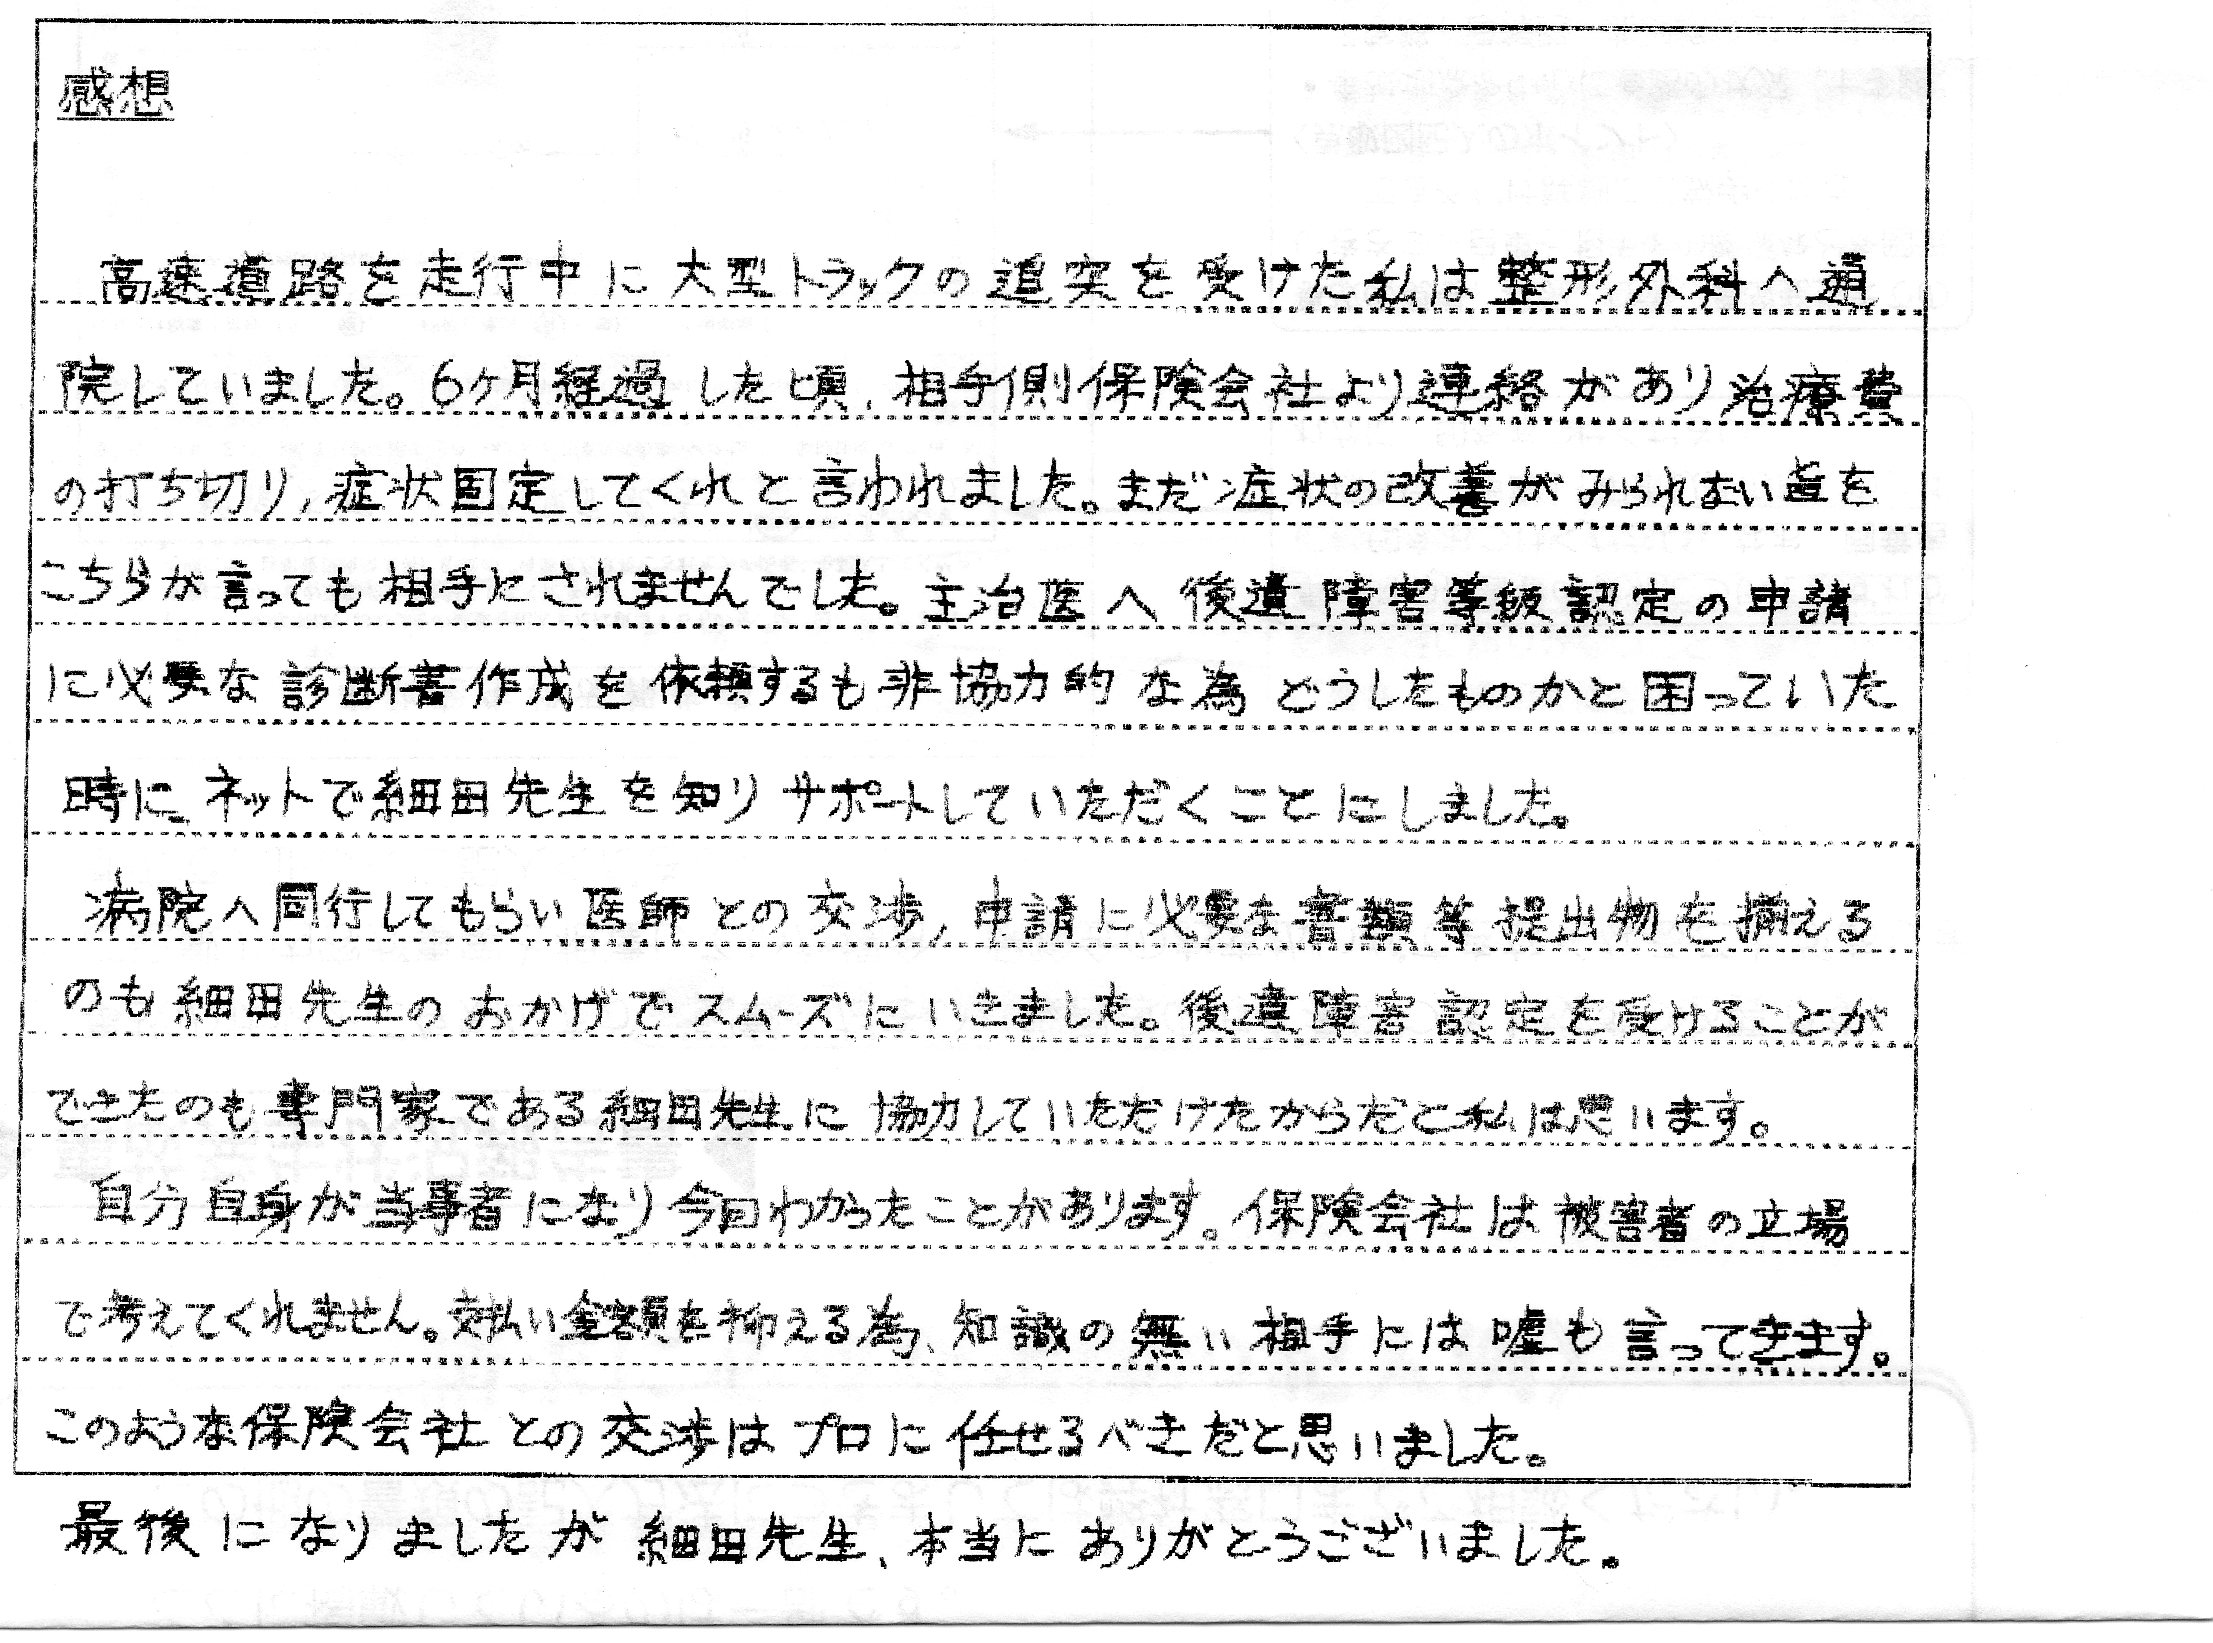 感想
高速道路を走行中に大型トラックの追突を受けた私は整形外科へ通
院していました。6ヶ月経過した頃、相手側保険会社より連絡があり治療費
の打ち切り,症状固定してくれと言われました。まだ症状の改善がみられない旨を
こちらが言っても相手にされませんでした。主治医へ後遺障害等級認定の申請
に必要な診断書作成を依頼するも非協力的な為どうしたものかと困っていた
時にネットで細田先生を知りサポートしていただくことにしました。
病院へ同行してもらい医師との交渉,申請に必要な書類等提出物を揃える
のも細田先生のおかげでスムーズにいきました。後遺障害認定を受けることが
できたのも専門家である細田先生に協力していただけたからだと私は思います。
自分自身が当事者になり今回わかったことがあります。保険会社は被害者の立場
で考えてくれません。支払い金額を抑える為、知識の無い相手には嘘も言ってきます。
このような保険会社との交渉はプロに任せるべきだと思いました。
最後になりましたが細田先生、本当にありがとうございました。